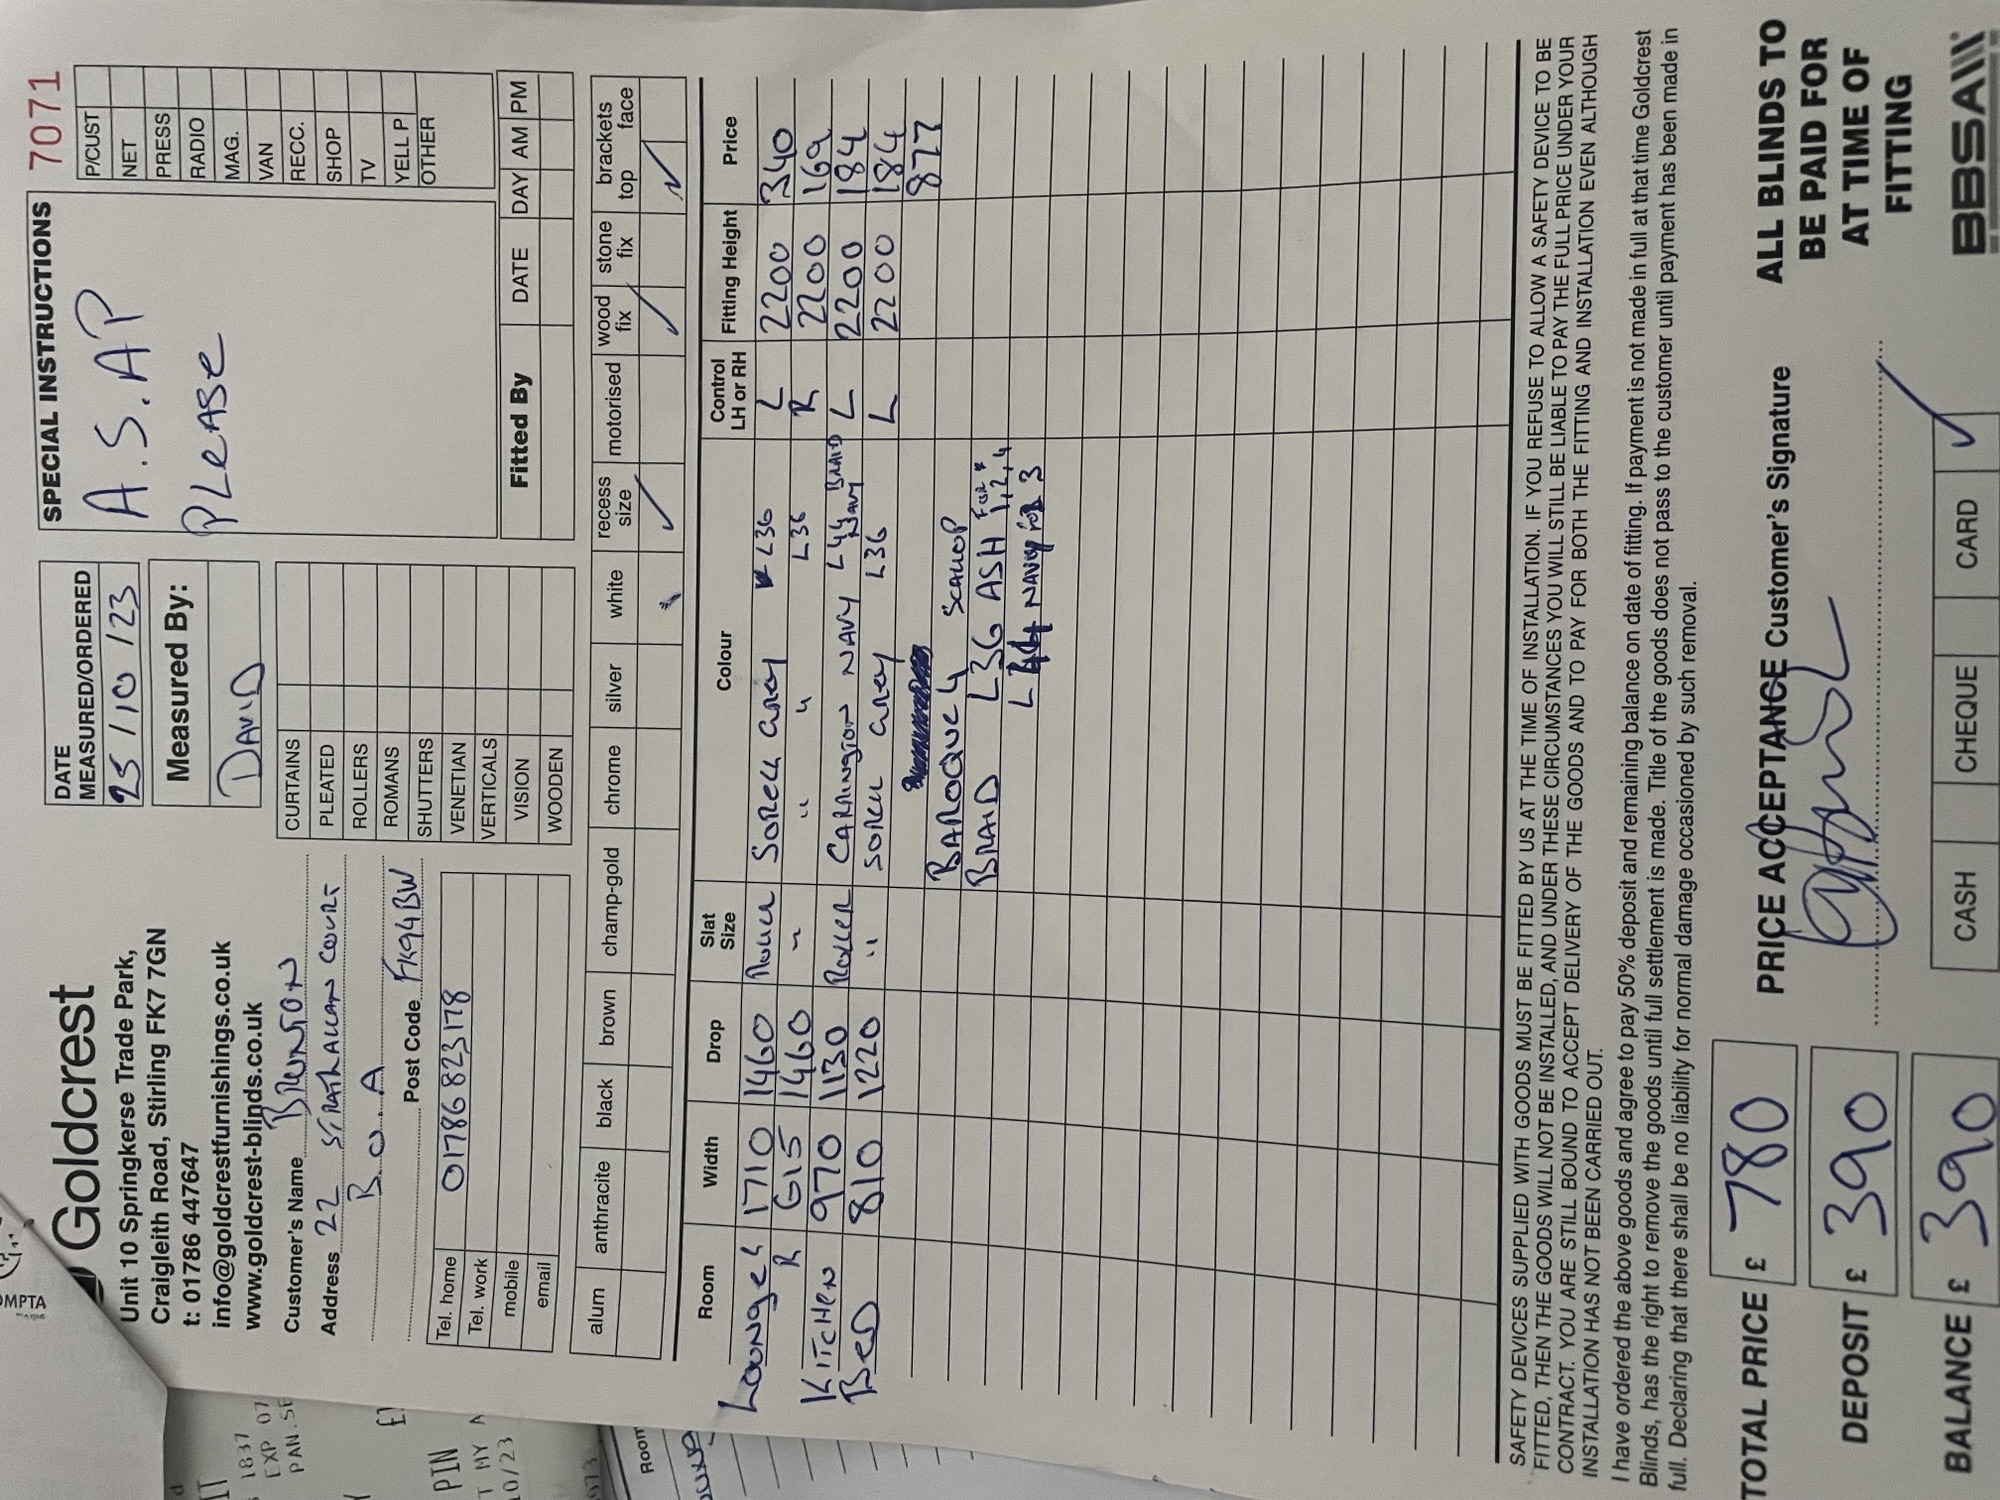 7071
Goldcrest
Unit 10 Springkerse Trade Park,
Craigleith Road, Stirling FK7 7GN
t: 01786 447647
info@goldcrestfurnishings.co.uk
www.goldcrest-blinds.co.uk
Customer's Name BRUNTON
Address 22 STRATHALLAN COURT
B.O.A
Post Code FK94BW
Tel. home 01786 823178
Tel. work
mobile
email
DATE
MEASURED/ORDERED
25/10/23
Measured By:
DAVID
CURTAINS
PLEATED
ROLLERS
ROMANS
SHUTTERS
VENETIAN
VERTICALS
VISION
WOODEN
SPECIAL INSTRUCTIONS
A.S.AP
PLEASE
P/CUST
NET
PRESS
RADIO
MAG.
VAN
RECC.
SHOP
TV
YELL P
OTHER
Fitted By DATE DAY AM PM
alum anthracite black brown champ-gold chrome silver white recess size motorised wood fix stone fix brackets top face
Room Width Drop Slat Size Colour Control LH or RH Fitting Height Price
LOUNGE L 1710 1460 ROLLER SORELL GREY L36 L 2200 340
R 615 1460 " " " L36 R 2200 169
KITCHEN 970 1130 ROLLER CARRINGTON NAVY L44 NAVY BRAID L 2200 184
BED 810 1220 " SORELL GREY L36 L 2200 184
877
BAROQUE 4 SCALLOP
BRAID L36 ASH FOR 1,2,4
L44 NAVY FOR 3
SAFETY DEVICES SUPPLIED WITH GOODS MUST BE FITTED BY US AT THE TIME OF INSTALLATION. IF YOU REFUSE TO ALLOW A SAFETY DEVICE TO BE
FITTED, THEN THE GOODS WILL NOT BE INSTALLED, AND UNDER THESE CIRCUMSTANCES YOU WILL STILL BE LIABLE TO PAY THE FULL PRICE UNDER YOUR
CONTRACT. YOU ARE STILL BOUND TO ACCEPT DELIVERY OF THE GOODS AND TO PAY FOR BOTH THE FITTING AND INSTALLATION EVEN ALTHOUGH
INSTALLATION HAS NOT BEEN CARRIED OUT.
I have ordered the above goods and agree to pay 50% deposit and remaining balance on date of fitting. If payment is not made in full at that time Goldcrest
Blinds, has the right to remove the goods until full settlement is made. Title of the goods does not pass to the customer until payment has been made in
full. Declaring that there shall be no liability for normal damage occasioned by such removal.
TOTAL PRICE £ 780
DEPOSIT £ 390
BALANCE £ 390
PRICE ACCEPTANCE Customer's Signature
CASH CHEQUE CARD
ALL BLINDS TO
BE PAID FOR
AT TIME OF
FITTING
BBSA
1837
EXP 07
PIN
10/23
Room